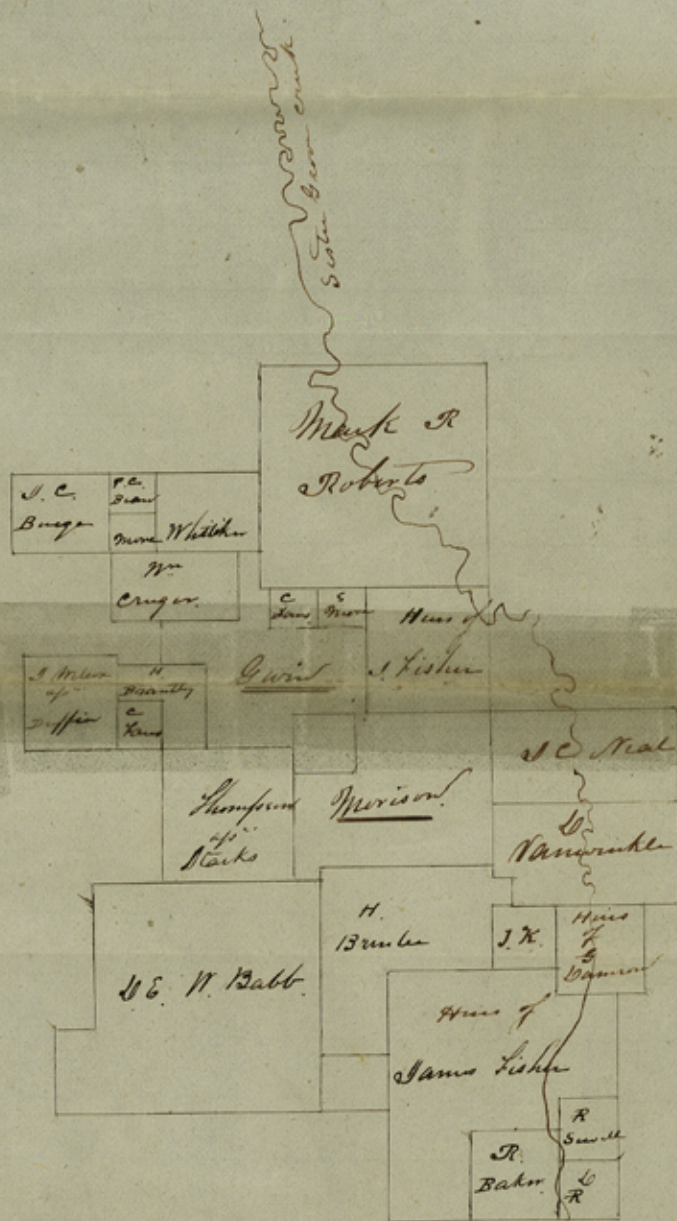 Sister Grove Creek
Mark R
Roberts
J. C.
Burge
P. C.
More
Whitiker
Wm
Cruger.
C
S
More
Heirs of
J. Fisher
Gwin
J. Wilson
H.
Brantly
Duffin
C
J C Neal
Thompson
Starks
Morison.
D
Vanwinkle
H.
Brinlee
J. K.
Heirs
of
G
Damron
D E. W. Babb.
Heirs of
James Fisher
R
Sewell
R.
Baker
D
R